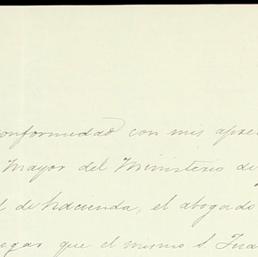 conformidad con mis
Mayor del Ministerio de
de Hacienda, el abogado
que el mismo S.